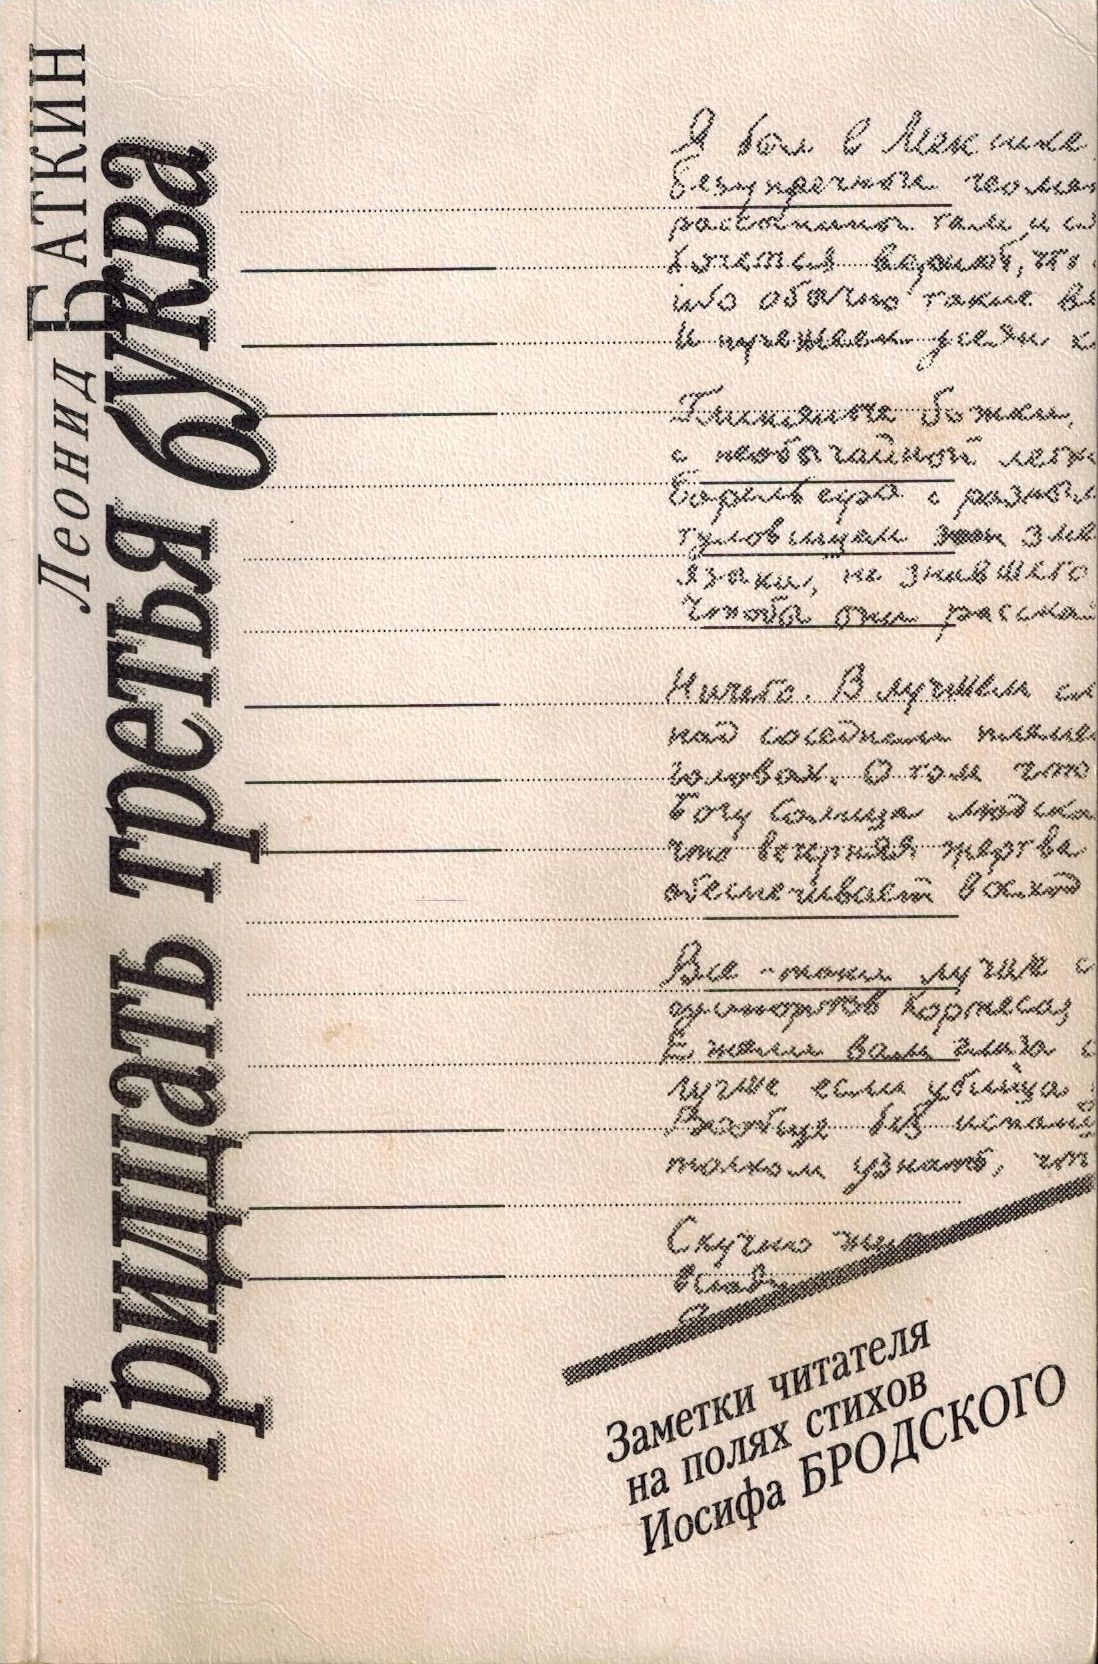 Леонид БАТКИН
Тридцать третья буква
Я был в Мексике
безупречные геомет
рассыпаны там и с
хочется верить, что
ибо обычно такие ве
И перешеек усеян к
Глиняные божки,
с необычайной легк
Барельефы с разным
туловищем зме
языки, не знавшего
Чтобы они расска
Ничего. В лучшем сл
над соседним племе
головах. О том что
Богу Солнца людска
что вечерняя жертва
обеспечивает восход
Все-таки лучше с
Кортеса
Ежели вам глаза с
лучше если убийца
Вообще без испан
толком узнать, чт
Скучно жи
Заметки читателя
на полях стихов
Иосифа БРОДСКОГО